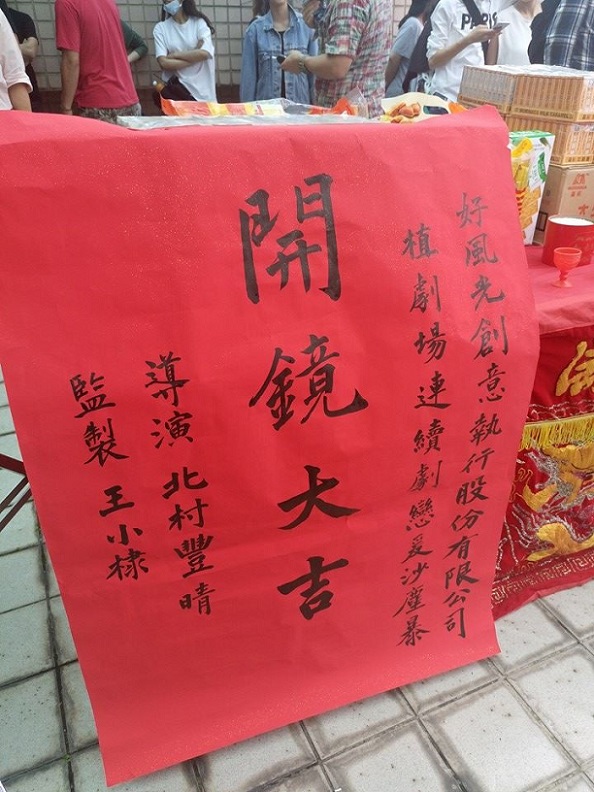 PARIS
好風光創意執行股份有限公司
植劇場連續劇戀愛沙塵暴
開鏡大吉
導演 北村豐晴
監製 王小棣